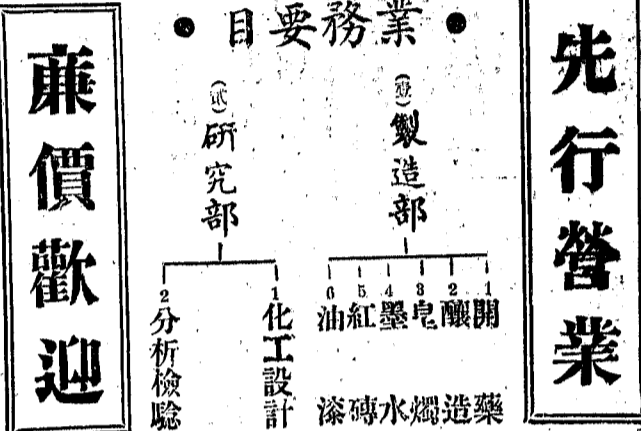 先行營業
業務要目
(壹)製造部
1開藥
2釀造
3皂燭
4墨水
5紅磚
6油漆
(貳)研究部
1化工設計
2分析檢驗
廉價歡迎